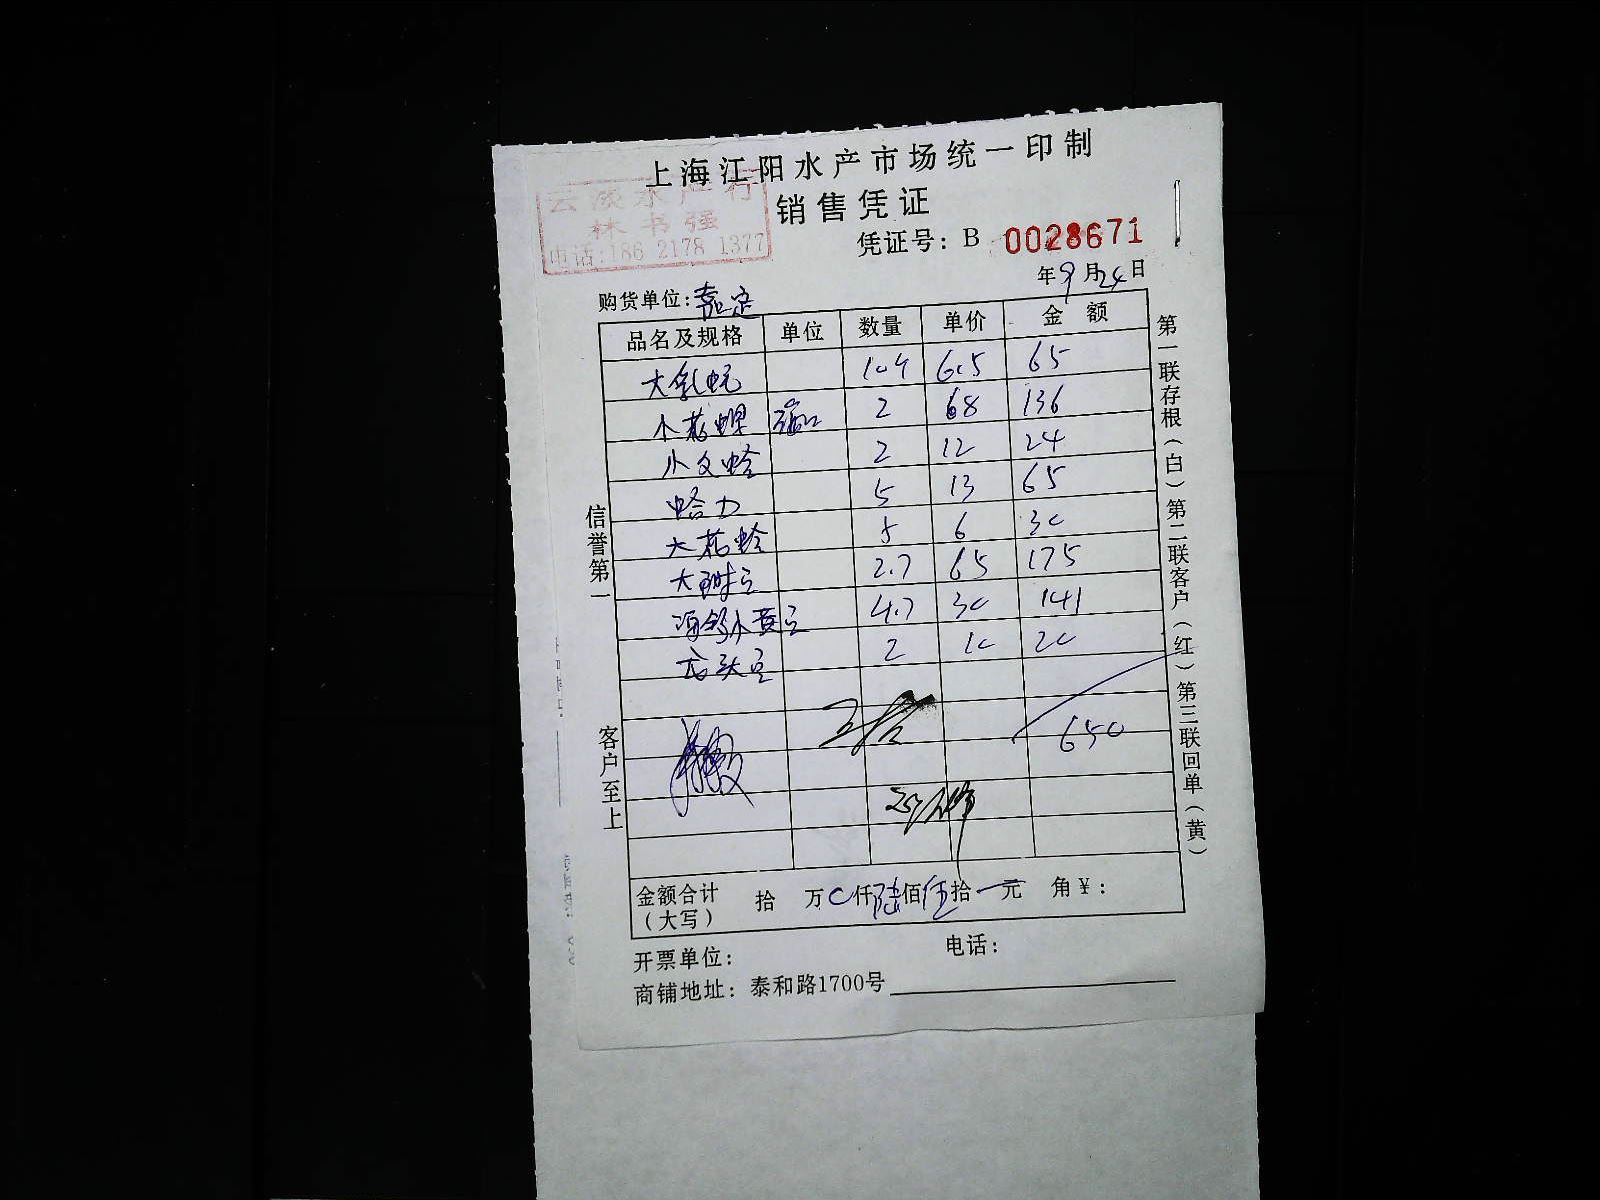 上海江阳水产市场统一印制
云淡水产行
林书强
电话:186 2178 1377
销售凭证
凭证号: B 0028671
年9月24日
购货单位:嘉定
品名及规格 单位 数量 单价 金额
大 10.4 6.5 65
小花螺 2 68 136
小文蛤 2 12 24
蛤力 5 13 65
大花蛤 5 6 30
大 2.7 65 175
小黄豆 4.7 30 141
头 2 10 20
650
金额合计(大写) 拾 万0仟陆佰伍拾一元 角¥:
开票单位: 电话:
商铺地址: 泰和路1700号
信誉第一
客户至上
第一联存根(白)第二联客户(红)第三联回单(黄)